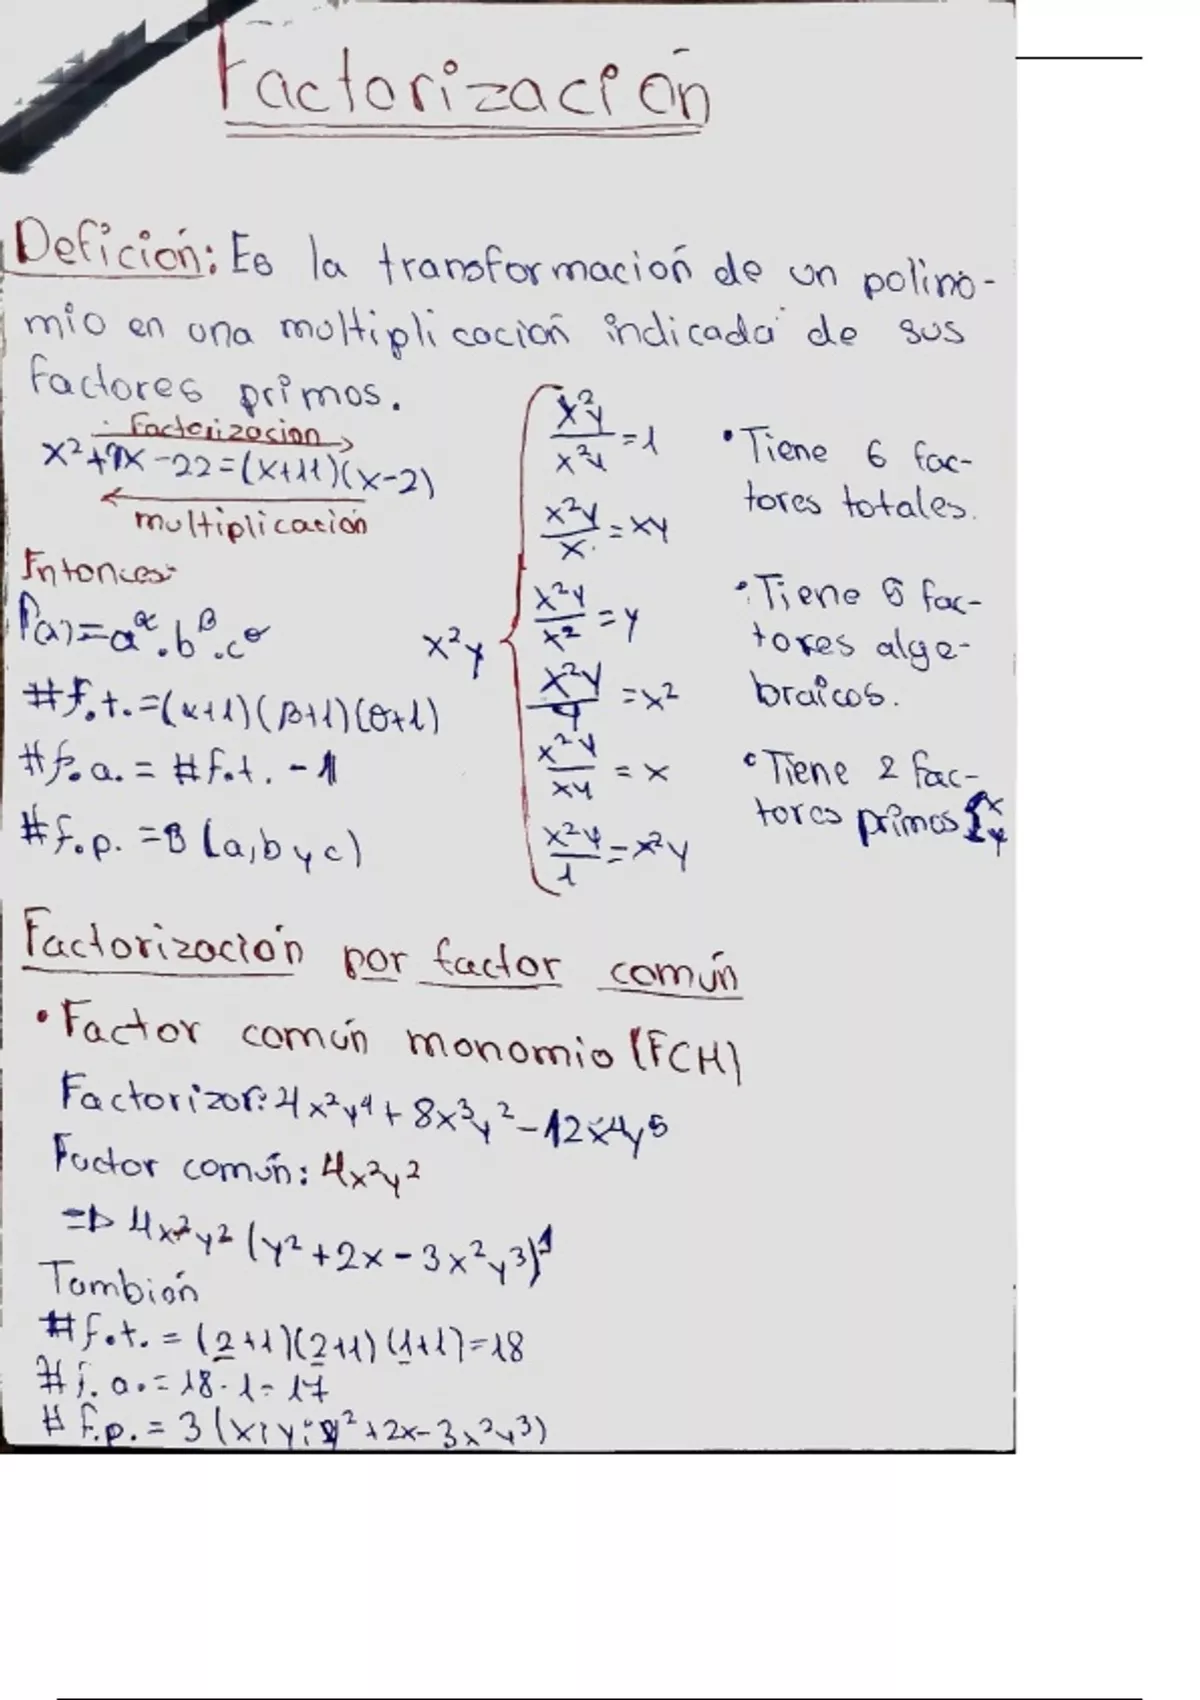 Factorización
Deficion: Es la transformación de un polino-
mio en una multiplicación indicada de sus
factores primos.
Factorizacion
x²+9x-22=(x+11)(x-2)
multiplicación
Entonces:
P(a)=a^α.b^β.c^θ
#f.t.=(α+1)(β+1)(θ+1)
#f.a.= #f.t. -1
#f.p. =3 (a,b y c)
x²y
x²y/x²y =1
x²y/x =xy
x²y/x² =y
x²y/y =x²
x²y/xy = x
x²y/1 =x²y
•Tiene 6 fac-
tores totales.
•Tiene 5 fac-
tores alge-
braicos.
•Tiene 2 fac-
tores primos {x
y
Factorización por factor común
•Factor común monomio (FCM)
Factorizar: 4x²y⁴+8x³y²-12x⁴y⁵
Factor común: 4x²y²
=> 4x²y²(y²+2x-3x²y³)¹
También
#f.t. = (2+1)(2+1)(1+1)=18
#f.a.=18-1=17
#f.p.= 3 (x;y;y²+2x-3x²y³)